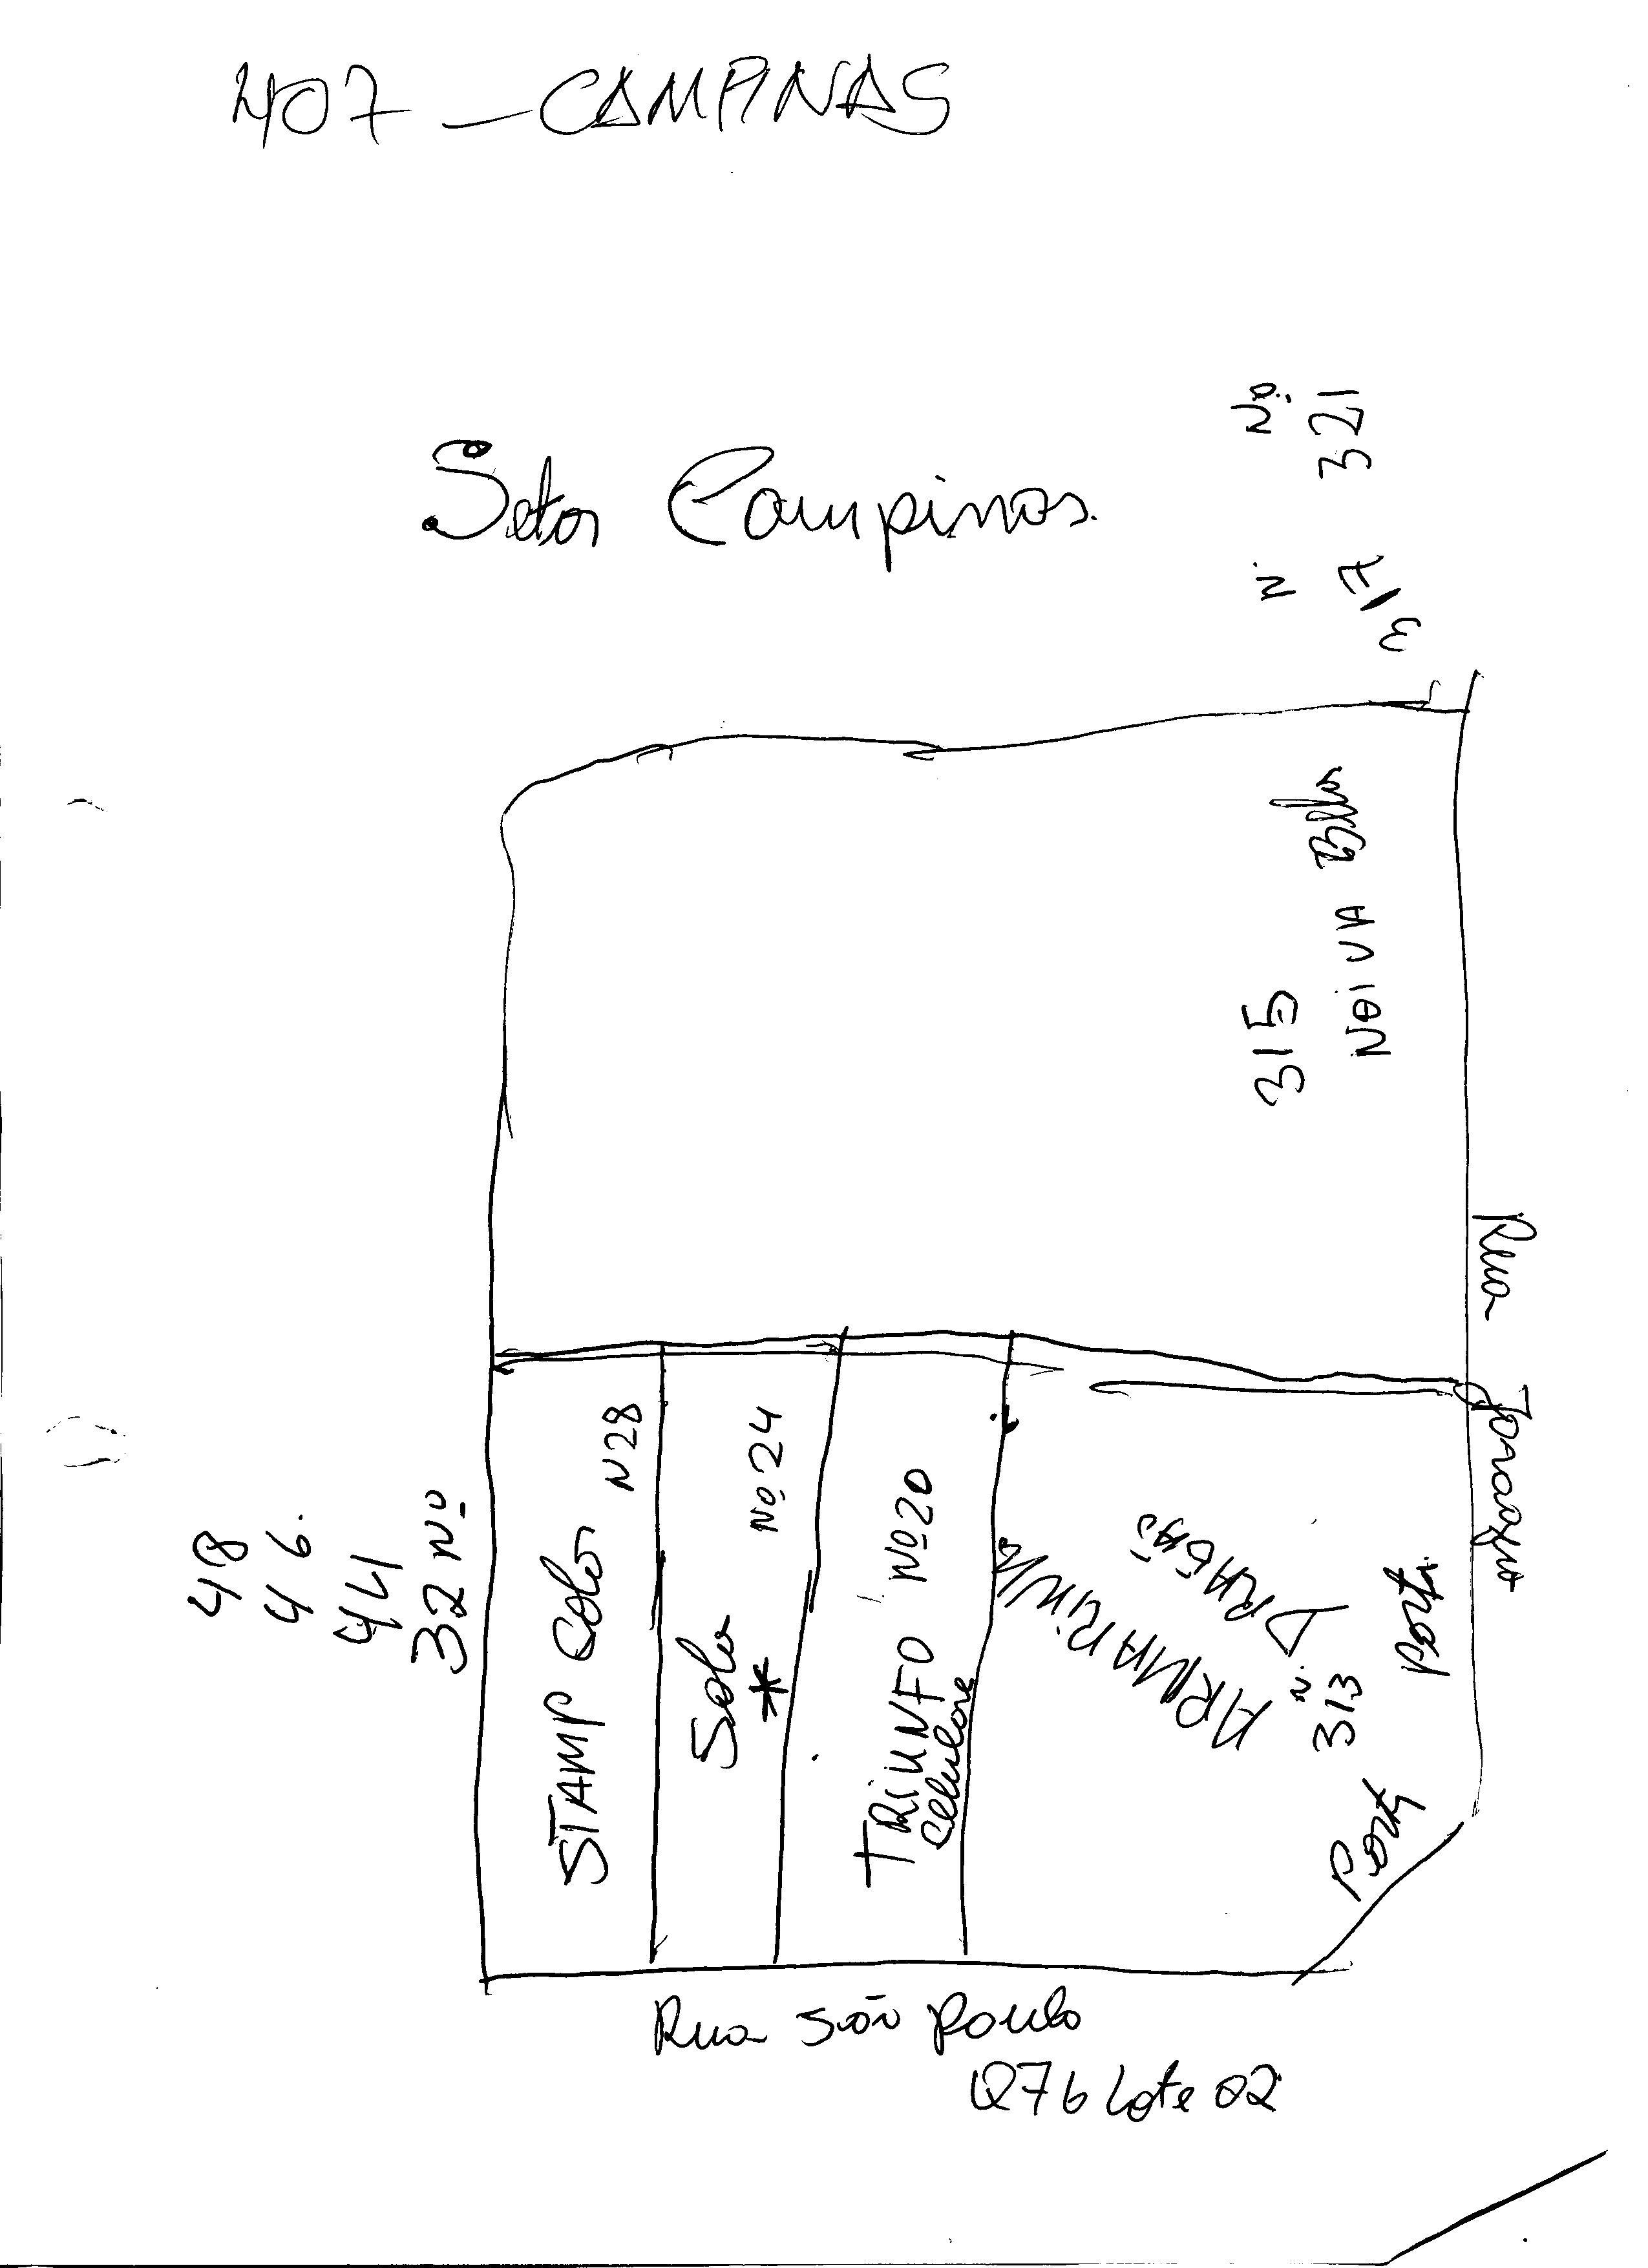 407 - CAMPINAS
Setor Campinas.
Nº. 321
N. 317
315
NOIVA Bella
STAMP Color N 28
Sala Nº 24
*
TRIUNFO Nº 20
Celulare
ARMARINho
DRAGÃO
N. 313
Porta
Porta
48
46.
44
32 Nº
Rua
Rua São Paulo
Q76 Lote 02